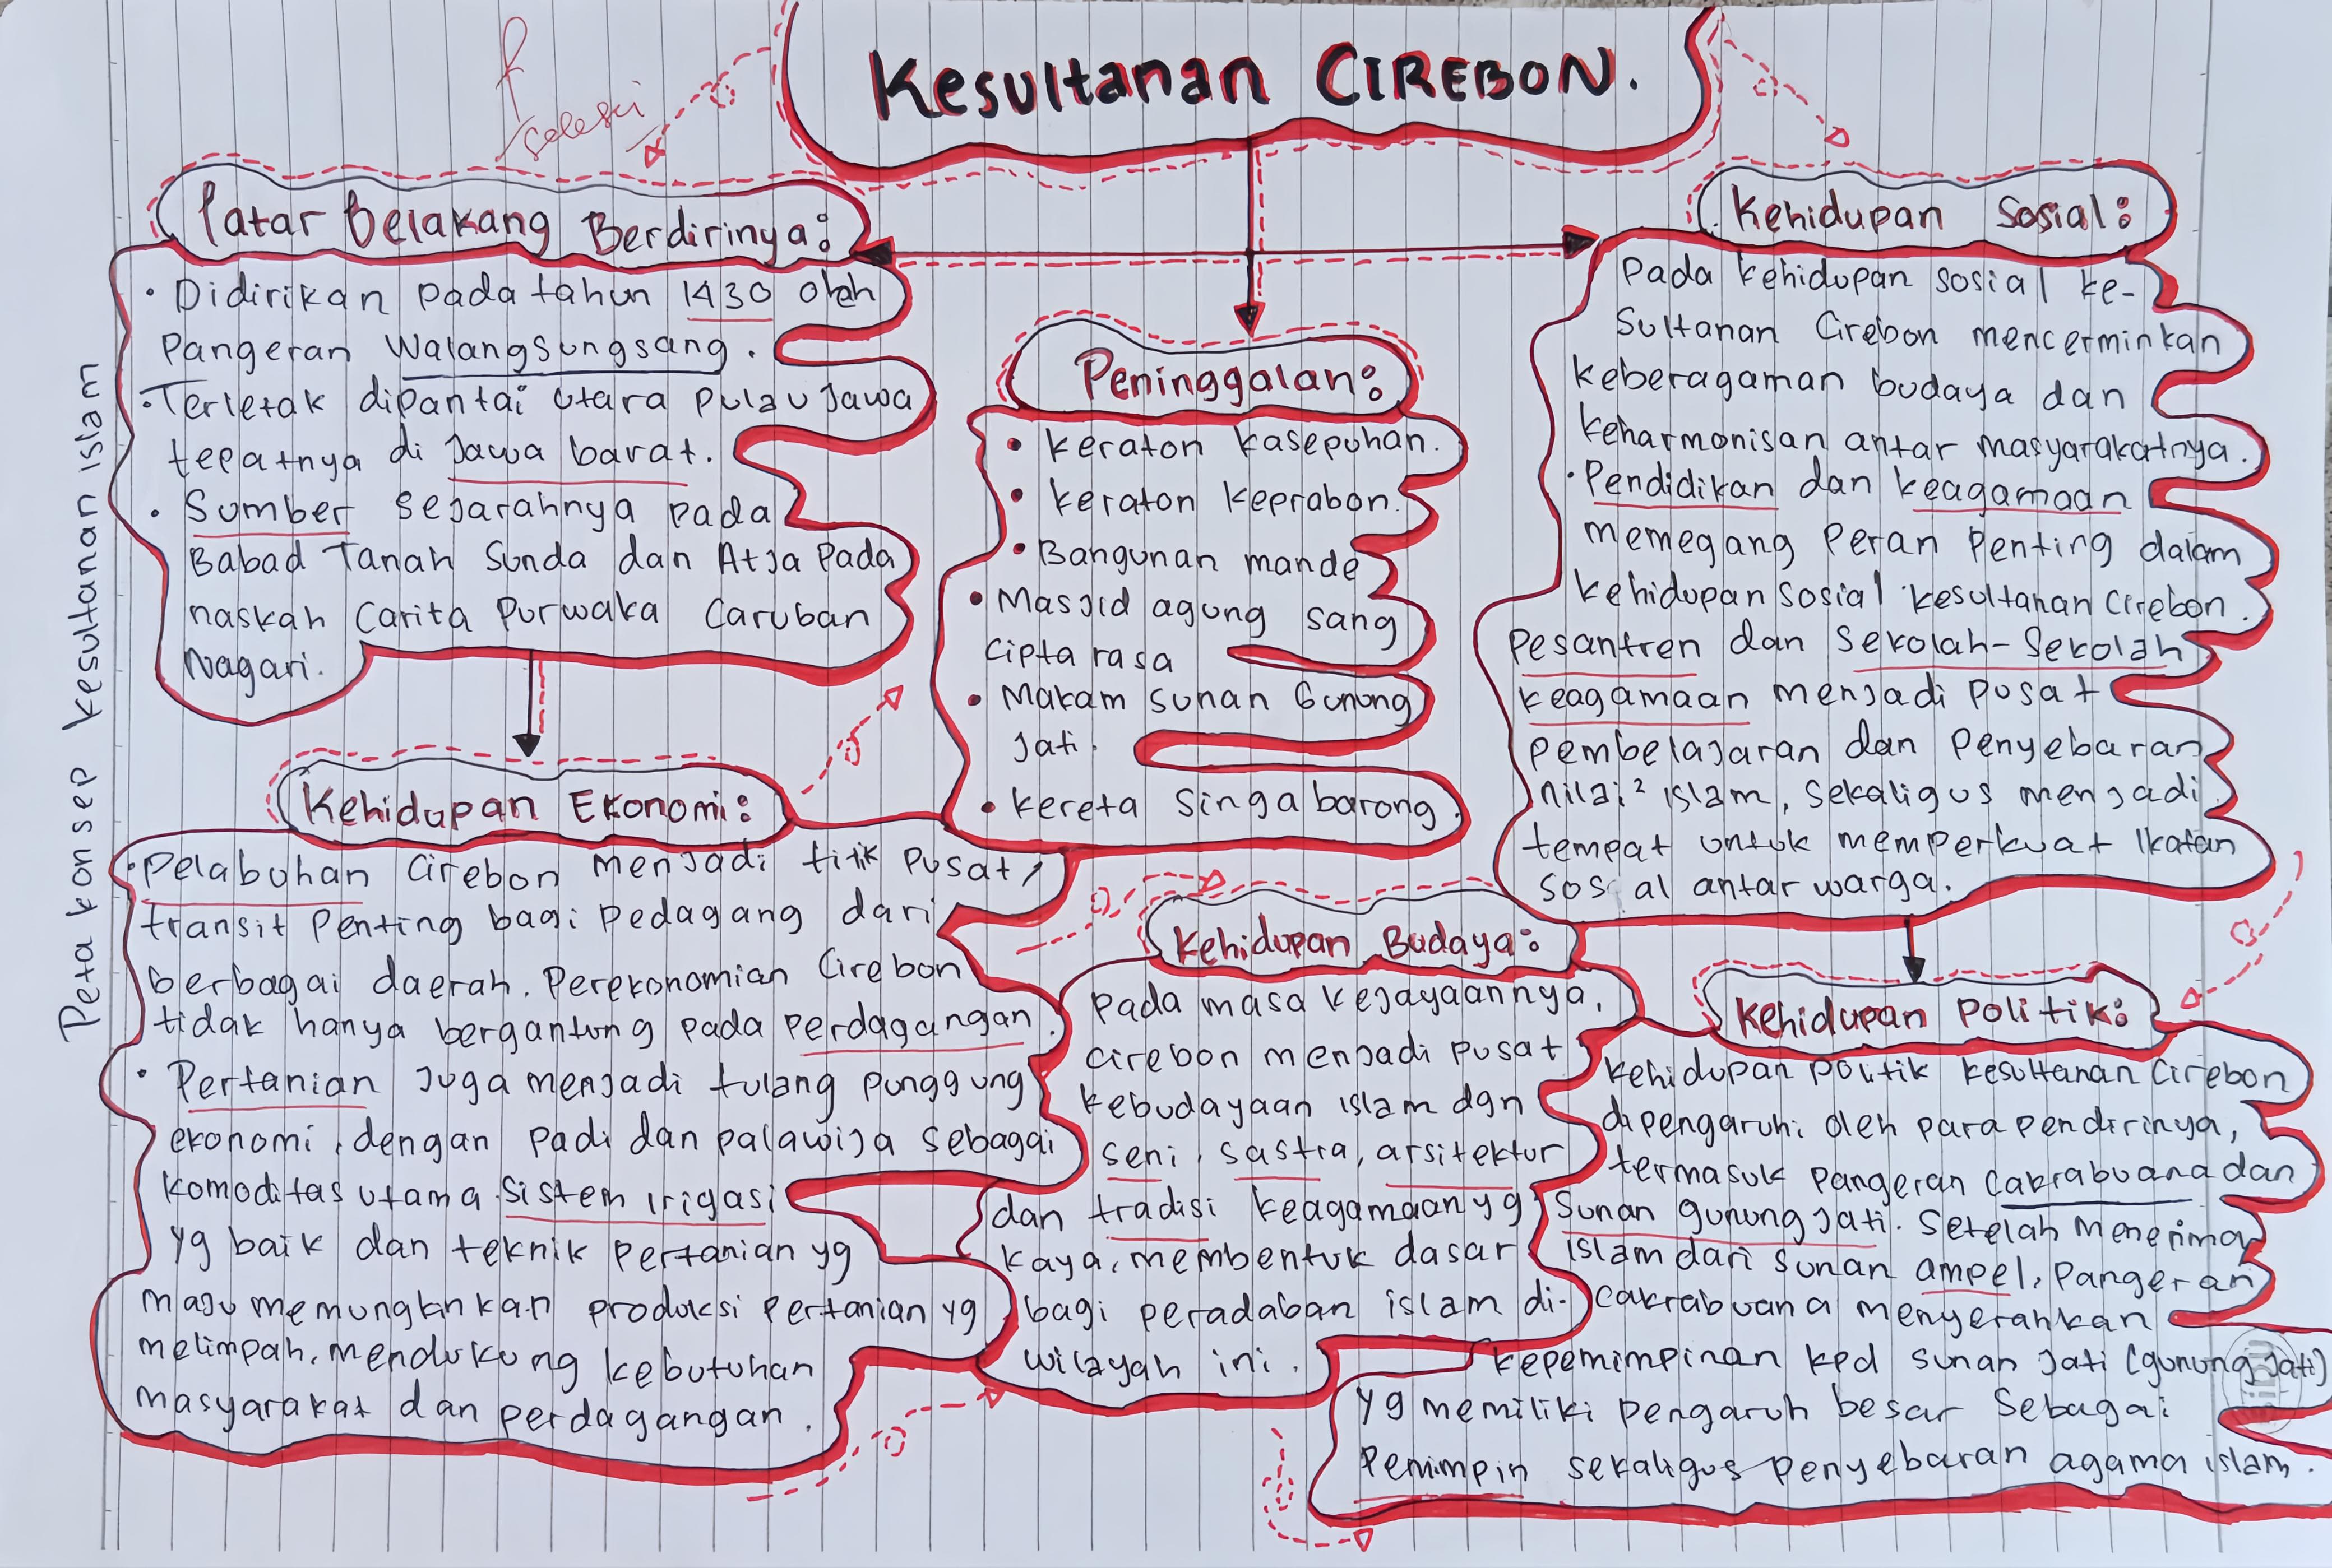 Kesultanan CIREBON.
selesai
Peta konsep kesultanan islam
Latar Belakang Berdirinya:
• Didirikan pada tahun 1430 oleh
Pangeran Walangsungsang.
• Terletak dipantai utara pulau Jawa
tepatnya di Jawa barat.
• Sumber sejarahnya pada
Babad Tanah Sunda dan Atja pada
naskah Carita Purwaka Caruban
Nagari.
Kehidupan Ekonomi:
• Pelabuhan Cirebon menjadi titik pusat,
transit penting bagi pedagang dari
berbagai daerah. Perekonomian Cirebon
tidak hanya bergantung pada perdagangan.
• Pertanian juga menjadi tulang punggung
ekonomi, dengan padi dan palawija sebagai
komoditas utama. Sistem irigasi
yg baik dan teknik pertanian yg
maju memungkinkan produksi pertanian yg
melimpah, mendukung kebutuhan
masyarakat dan perdagangan.
Peninggalan:
• keraton kasepuhan.
• keraton keprabon.
• Bangunan mande
• Masjid agung sang
cipta rasa
• Makam sunan Gunung
Jati.
• kereta singa barong.
Kehidupan Budaya:
pada masa kejayaannya,
cirebon menjadi pusat
kebudayaan islam dgn
seni, sastra, arsitektur
dan tradisi keagamaan yg
kaya, membentuk dasar
bagi peradaban islam di-
wilayah ini.
Kehidupan Sosial:
Pada kehidupan sosial ke-
sultanan Cirebon mencerminkan
keberagaman budaya dan
keharmonisan antar masyarakatnya.
• Pendidikan dan keagamaan
memegang peran penting dalam
kehidupan sosial kesultanan Cirebon.
Pesantren dan sekolah-sekolah
keagamaan menjadi pusat
pembelajaran dan penyebaran
nilai² islam, sekaligus menjadi
tempat untuk memperkuat ikatan
sosial antar warga.
Kehidupan Politik:
Kehidupan politik kesultanan Cirebon
dipengaruhi oleh para pendirinya,
termasuk pangeran Cakrabuana dan
Sunan gunung jati. Setelah menerima
islam dari sunan ampel, Pangeran
cakrabuana menyerahkan
kepemimpinan kpd sunan jati (gunung jati)
yg memiliki pengaruh besar sebagai
Pemimpin sekaligus penyebaran agama islam.